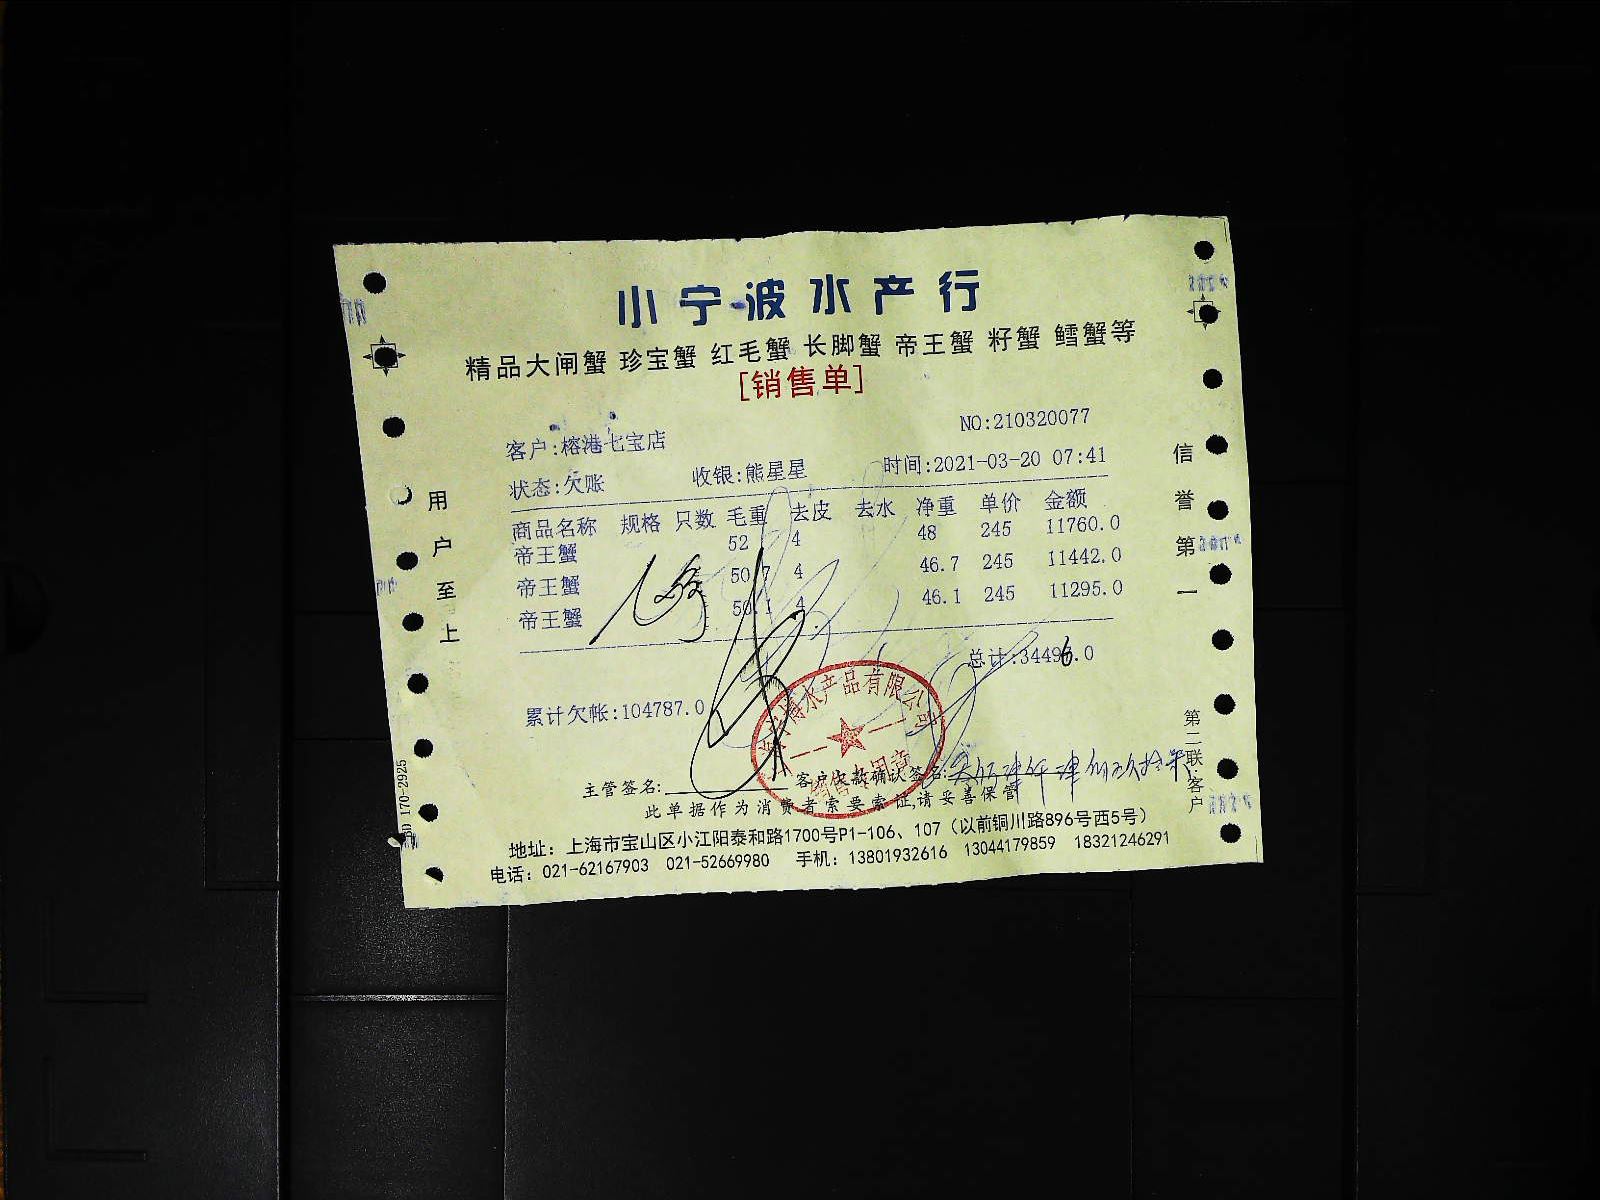 小宁波水产行
精品大闸蟹 珍宝蟹 红毛蟹 长脚蟹 帝王蟹 籽蟹 鳕蟹等
[销售单]
NO:210320077
客户:榕港七宝店
状态:欠账 收银:熊星星 时间:2021-03-20 07:41
商品名称 规格 只数 毛重 去皮 去水 净重 单价 金额
帝王蟹 52 4 48 245 11760.0
帝王蟹 50.7 4 46.7 245 11442.0
帝王蟹 50.1 4 46.1 245 11295.0
总计:34496.0
累计欠帐:104787.0
主管签名: 客户欠款确认签名:
此单据作为消费者索要索证,请妥善保管
地址：上海市宝山区小江阳泰和路1700号P1-106、107（以前铜川路896号西5号）
电话：021-62167903 021-52669980 手机：13801932616 13044179859 18321246291
用户至上
信誉第一
第二联客户
170-2925
水产品有限公司